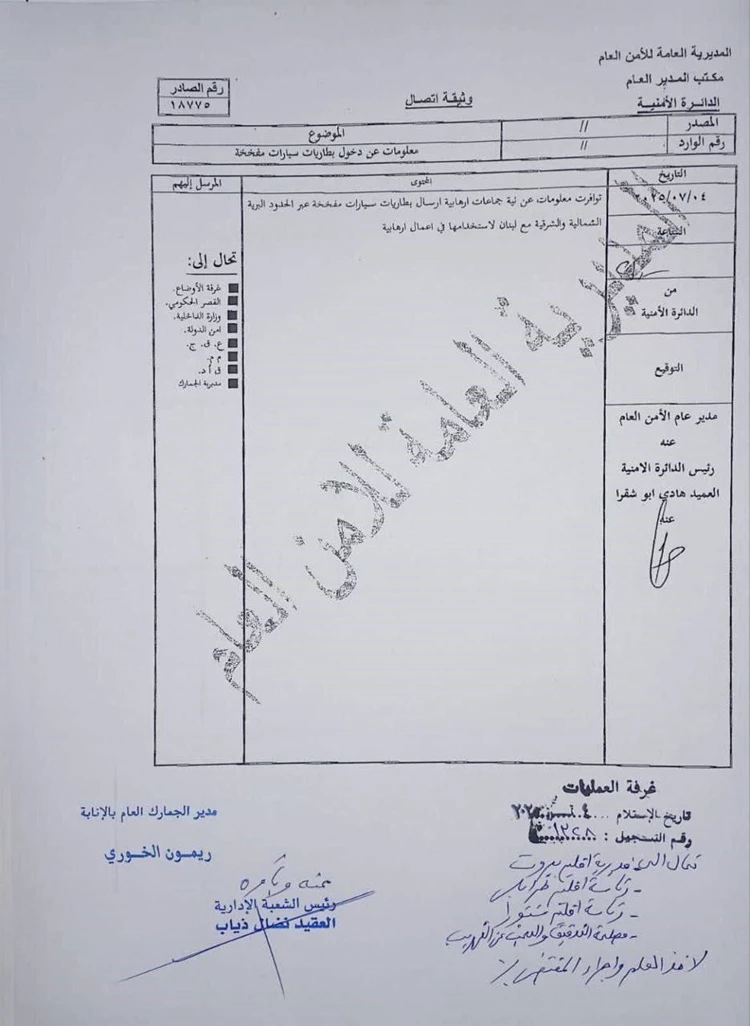 المديرية العامة للأمن العام
مكتب المدير العام
الدائرة الأمنية
وثيقة اتصال
رقم الصادر
١٨٧٧٥
المصدر
//
الموضوع
رقم الوارد
//
معلومات عن دخول بطاريات سيارات مفخخة
التاريخ
المحتوى
المرسل إليهم
توافرت معلومات عن نية جماعات ارهابية ارسال بطاريات سيارات مفخخة عبر الحدود البرية
الشمالية والشرقية مع لبنان لاستخدامها في اعمال ارهابية
٢٥/٠٧/٠٤
الساعة
من
الدائرة الأمنية
التوقيع
مدير عام الأمن العام
عنه
رئيس الدائرة الامنية
العميد هادي ابو شقرا
عنه
تحال إلى:
غرفة الأوضاع.
القصر الحكومي.
وزارة الداخلية.
امن الدولة.
ع. ق. ج.
م م.
ق أ د.
مديرية الجمارك
المديرية العامة للأمن العام
غرفة العمليات
تاريخ الإستلام
رقم التسجيل : ١٣٢٨
تحال الى مديرية اقليم بيروت
- رئاسة اقليم طرابلس
- رئاسة اقليم شتورا
- مصلحة التدقيق والبحث عن التهريب
لاخذ العلم واجراء المقتضى
مدير الجمارك العام بالإنابة
ريمون الخوري
عنه وبأمره
رئيس الشعبة الإدارية
العقيد نضال ذياب